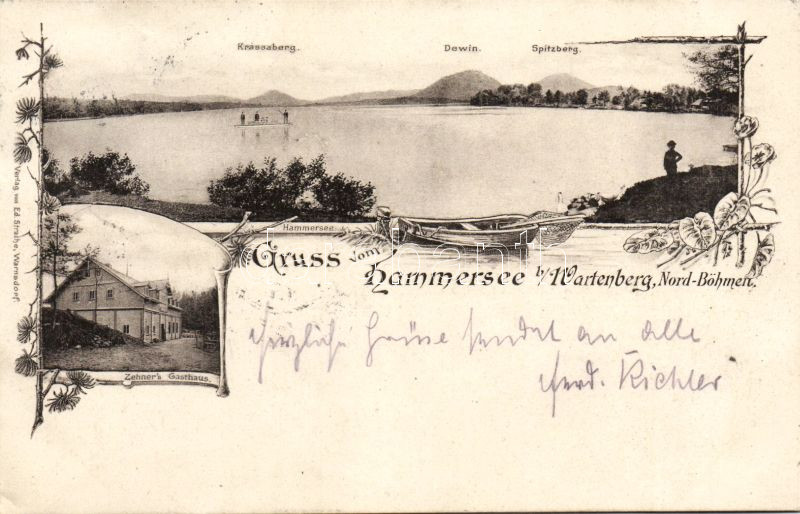 Krassaberg.
Dewin.
Spitzberg.
Hammersee
Gruss vom
Hammersee b/Wartenberg, Nord-Böhmen.
Zehner's Gasthaus.
Verlag von Ed. Strache, Warnsdorf.
Herzliche Grüße sendet an alle
Ferd. Richler